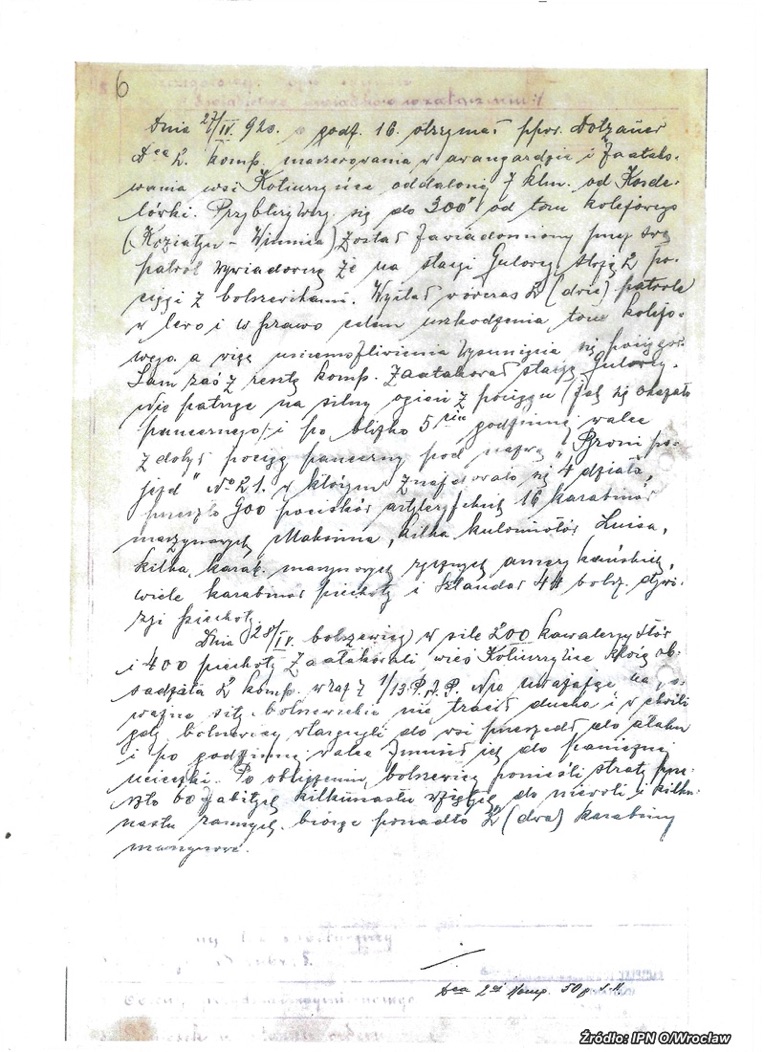 6
Dnia 27/IV. 920. o godz. 16. otrzymał ppor. Dolzauer
Dca 2. komp. maszerowania w awangardzie i zaatako-
wania wsi Kotiużyńce oddalonej 7 klm. od Korde-
lówki. Przybliżywszy się do 300x od toru kolejowego
(Koziatyn - Winnica) został zawiadomiony przez swój
patrol wywiadowczy że na stacji Gulowcy stoją 2 po-
ciągi z bolszewikami. Wysłał wówczas 2 (dwie) patrole
w lewo i w prawo celem uszkodzenia toru kolejo-
wego, a więc uniemożliwienia wysunięcia się pociągów.
Sam zaś z resztą komp. zaatakował stację Gulowcy.
Nie patrząc na silny ogień z pociągu (jak się okazało
pancernego) i po blizko 5cio godzinnej walce
zdobył pociąg pancerny pod nazwą "Broni po-
jezd" No 21. w którym znajdowało się 4 działa,
przeszło 900 pocisków artyleryjskich 16 karabinów
maszynowych Maksima, kilka kulomiotów Luisa,
kilka karab. maszynowych ręcznych amerykańskich,
wiele karabinów piechoty i sztandar 44 bolsz. dywi-
zji piechoty.
Dnia 28/IV. bolszewicy w sile 200 kawalerzystów
i 400 piechoty zaatakowali wieś Kotiużyńce którą ob-
sadzała 2 komp. wraz z 1/13 P.A.P. Nie uważając na
ważne siły bolszewickie nie tracił ducha i w chwili
gdy bolszewicy wtargnęli do wsi przeszedł do ataku
i po godzinnej walce zmusił ich do panicznej
ucieczki. Po obliczeniu bolszewicy ponieśli straty prze-
szło 60 zabitych kilkunastu wziętych do niewoli i kilku-
nastu rannych, biorąc ponadto 2 (dwa) karabiny
maszynowe.
Dca 2ej Komp. 50 p.
Źródło: IPN O/Wrocław